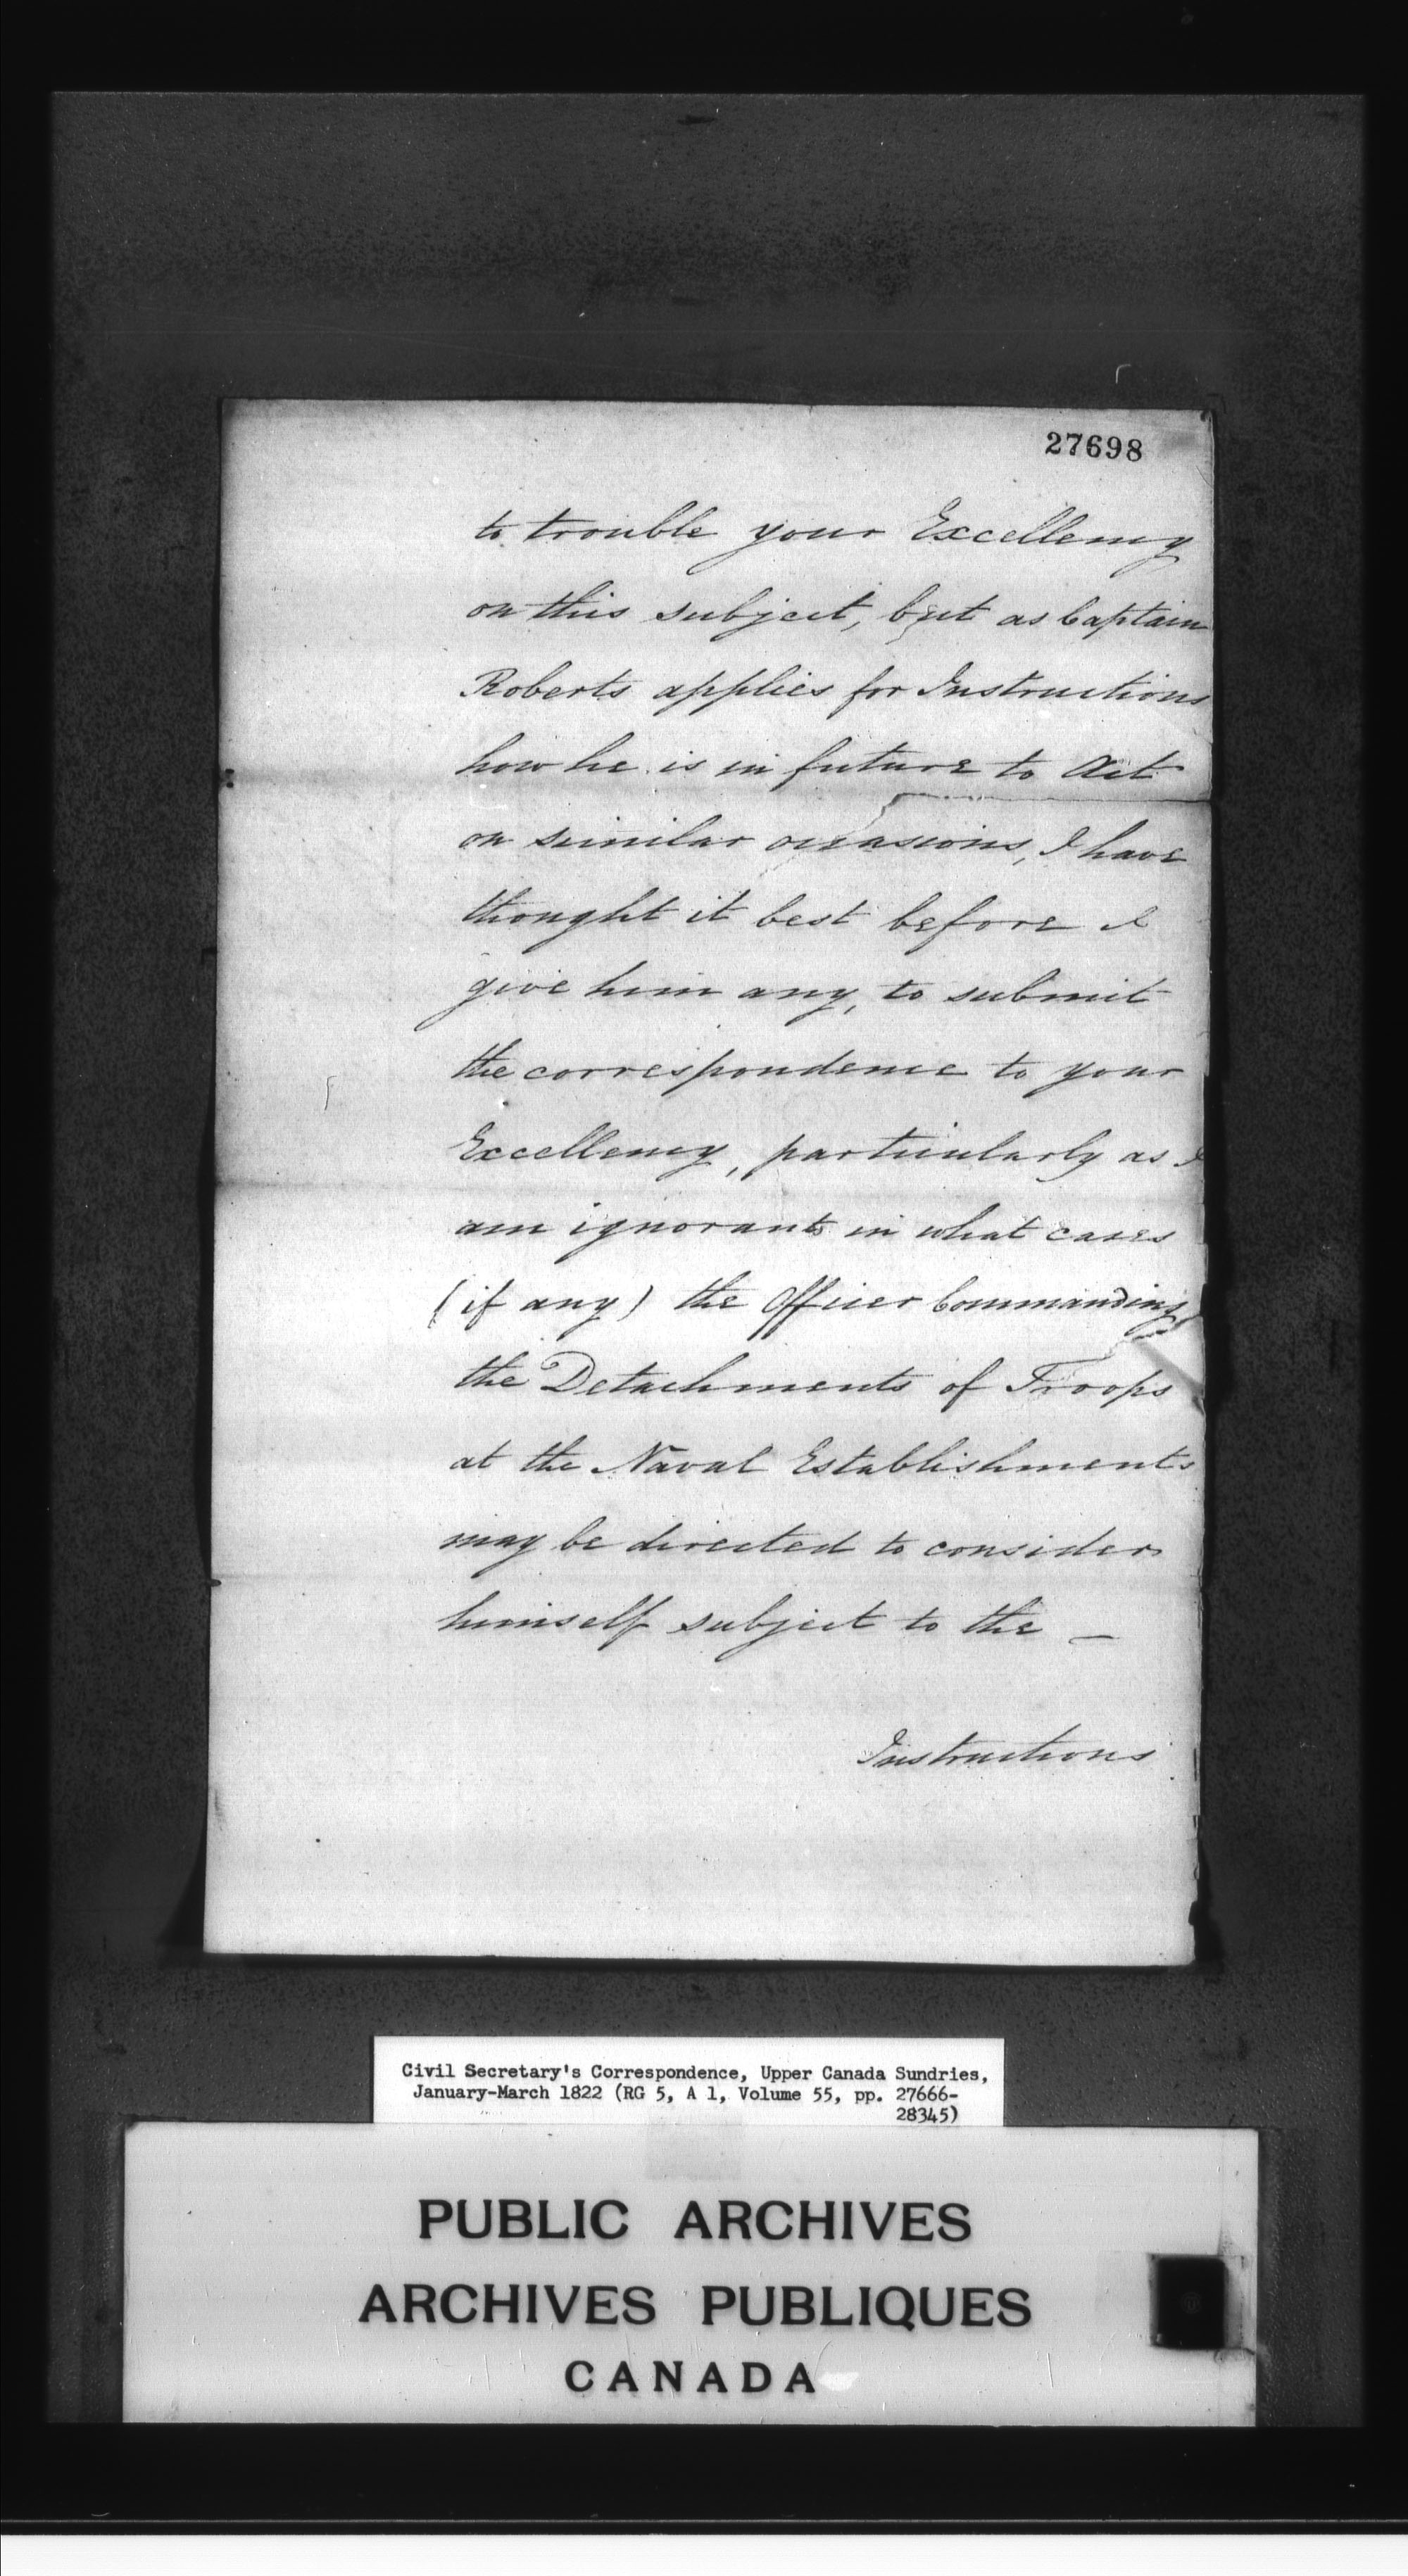 27698
to trouble your Excellency
on this subject, but as Captain
Roberts applies for Instructions
how he is in future to Act
on similar occasions, I have
thought it best before I
give him any, to submit
the correspondence to your
Excellency, particularly as I
am ignorant in what cases
(if any) the Officer Commanding
the Detachments of Troops
at the Naval Establishments
may be directed to consider
himself subject to the —
Instructions
Civil Secretary's Correspondence, Upper Canada Sundries,
January-March 1822 (RG 5, A 1, Volume 55, pp. 27666-
28345)
PUBLIC ARCHIVES
ARCHIVES PUBLIQUES
CANADA